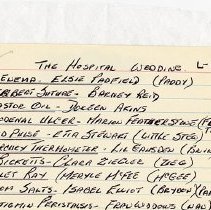 THE HOSPITAL WEDDING
ENEMA. ELSIE PADFIELD (PADDY)
SUTURE - BARNEY REID
ASTOR OIL - DOREEN AKINS
ODENAL ULCER - MARION FEATHERSTONE (FE
D PULSE - ETTA STEWART (LITTLE STEW)
THERMOMETER - LIL EAVSDEN
RICKETTS - CLARA ZIEGLER (ZIEG)
LET RAY (MERYLE MCGEE (MCGEE)
OM SALTS - ISABEL ELLIOT
PERISTALSIS - FRAN WOODOWS